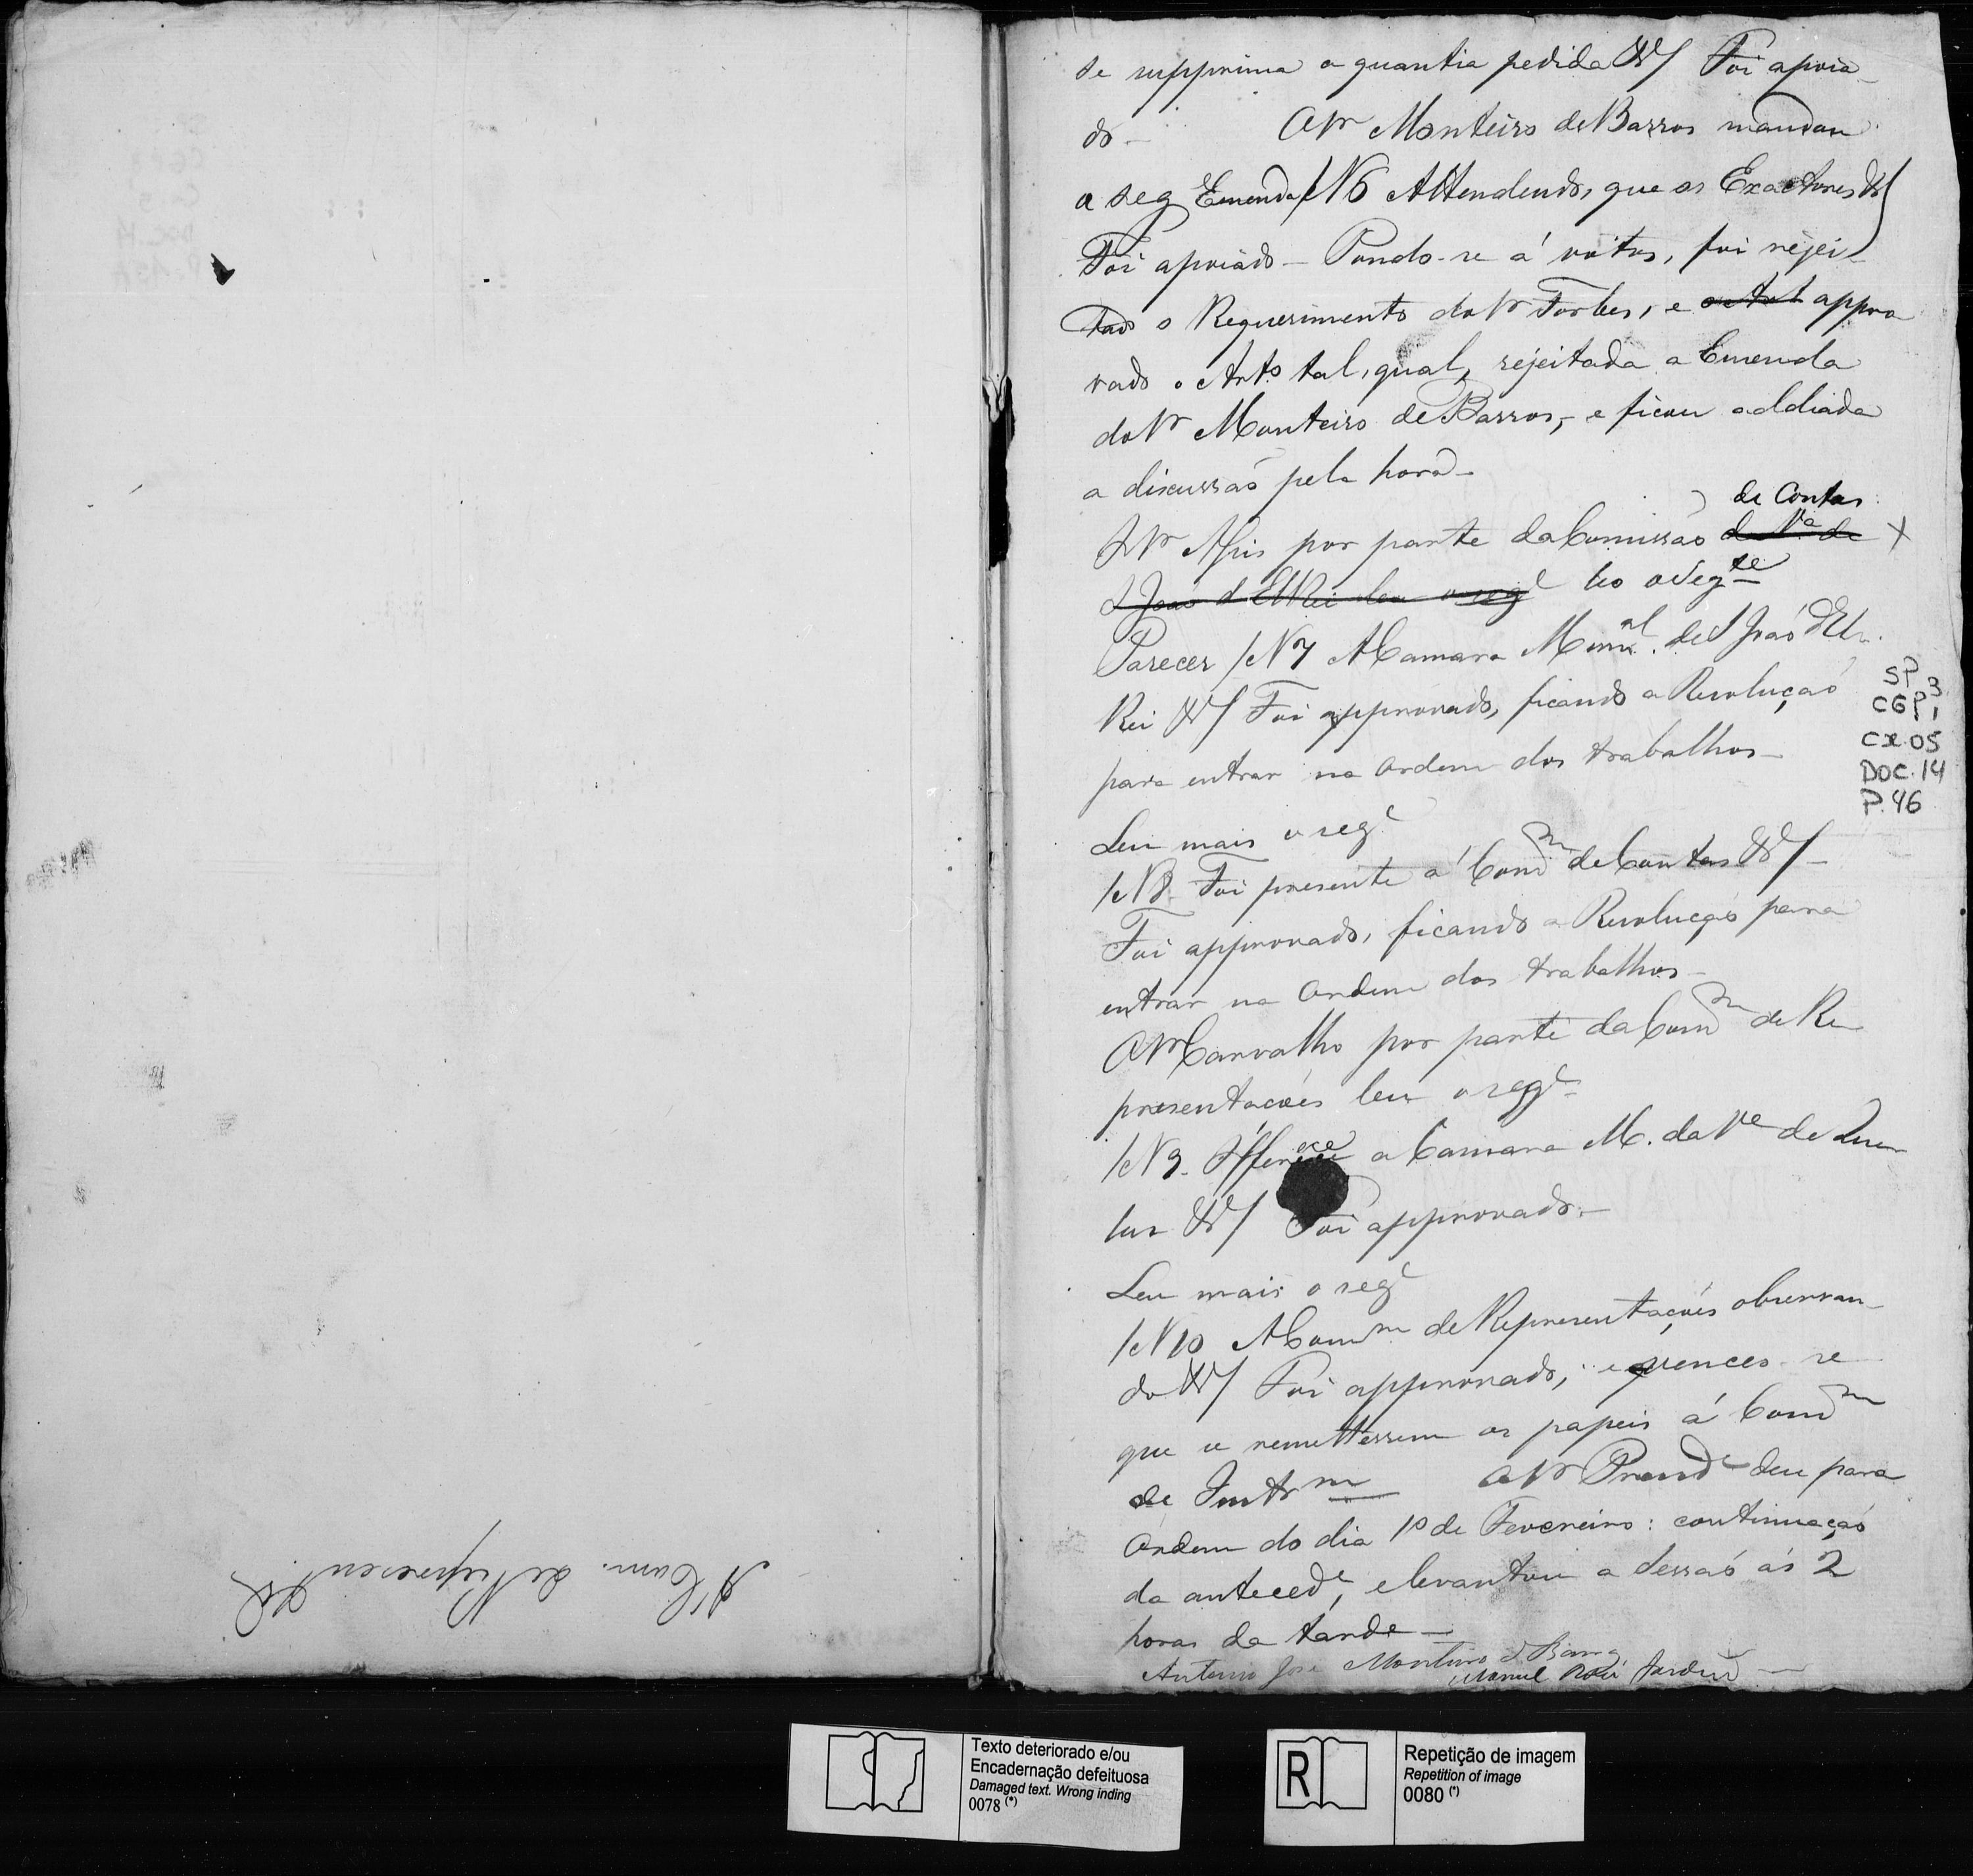 A Com. de Represen &&
se supprima a quantia pedida &/ Foi apoia
do — O Sr Monteiro de Barros mandou
a seg Emenda /N 6 Attendendo, que os Exactores &/
Foi apoiado — Pondo-se á votos, foi rejei-
tado o Requerimento do Sr Forbes, e o Art appro
vado o Arto tal, qual, rejeitada a Emenda
do Sr Monteiro de Barros, e ficou addiada
a discussaõ pela hora —
de Contas
Sr Assis por parte da Comissaõ da Va de X
S Joaõ d'ElRei leu o sege leo o Segte
Parecer /N 7 A Camara Munal. de S Joaõ d'El
Rei &/ Foi approvado, ficando a Resoluçaõ
para entrar na Ordem dos trabalhos —
Leu mais o sege
/N 8. Foi presente á Comm de Contas &/ —
Foi approvado, ficando a Resoluçaõ para
entrar na Ordem dos trabalhos —
O Sr Carvalho por parte da Comm de Re
presentaçoẽs leu o sege —
/N 9. Offerece a Camara M. da Va de Que
luz &/ Foi approvado. —
Leu mais o sege
/N 10 A Comm de Representaçoẽs observan-
do &/ Foi approvado, e venceo-se
que se remettessem os papeis á Comm
de Instrm O Sr Preside deu para
Ordem do dia 1º de Fevereiro: continuaçaõ
da antecede, e levantou a Sessaõ ás 2
horas da tarde —
Antonio José Monteiro de Barros
Manoel José
SP 3
CGP 1
CX. 05
DOC. 14
P. 46
Texto deteriorado e/ou
Encadernação defeituosa
Damaged text. Wrong inding
0078 (*)
R
Repetição de imagem
Repetition of image
0080 (*)